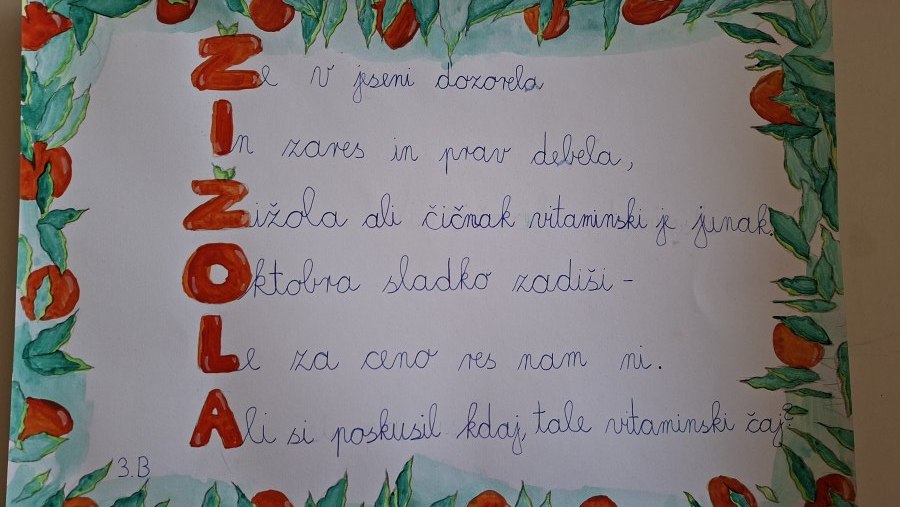 Že v jeseni dozorela
In zares in prav debela,
Žižola ali čičmak vitaminski je junak.
Oktobra sladko zadiši -
Le za ceno res nam ni.
Ali si poskusil kdaj, tale vitaminski čaj?
3.B